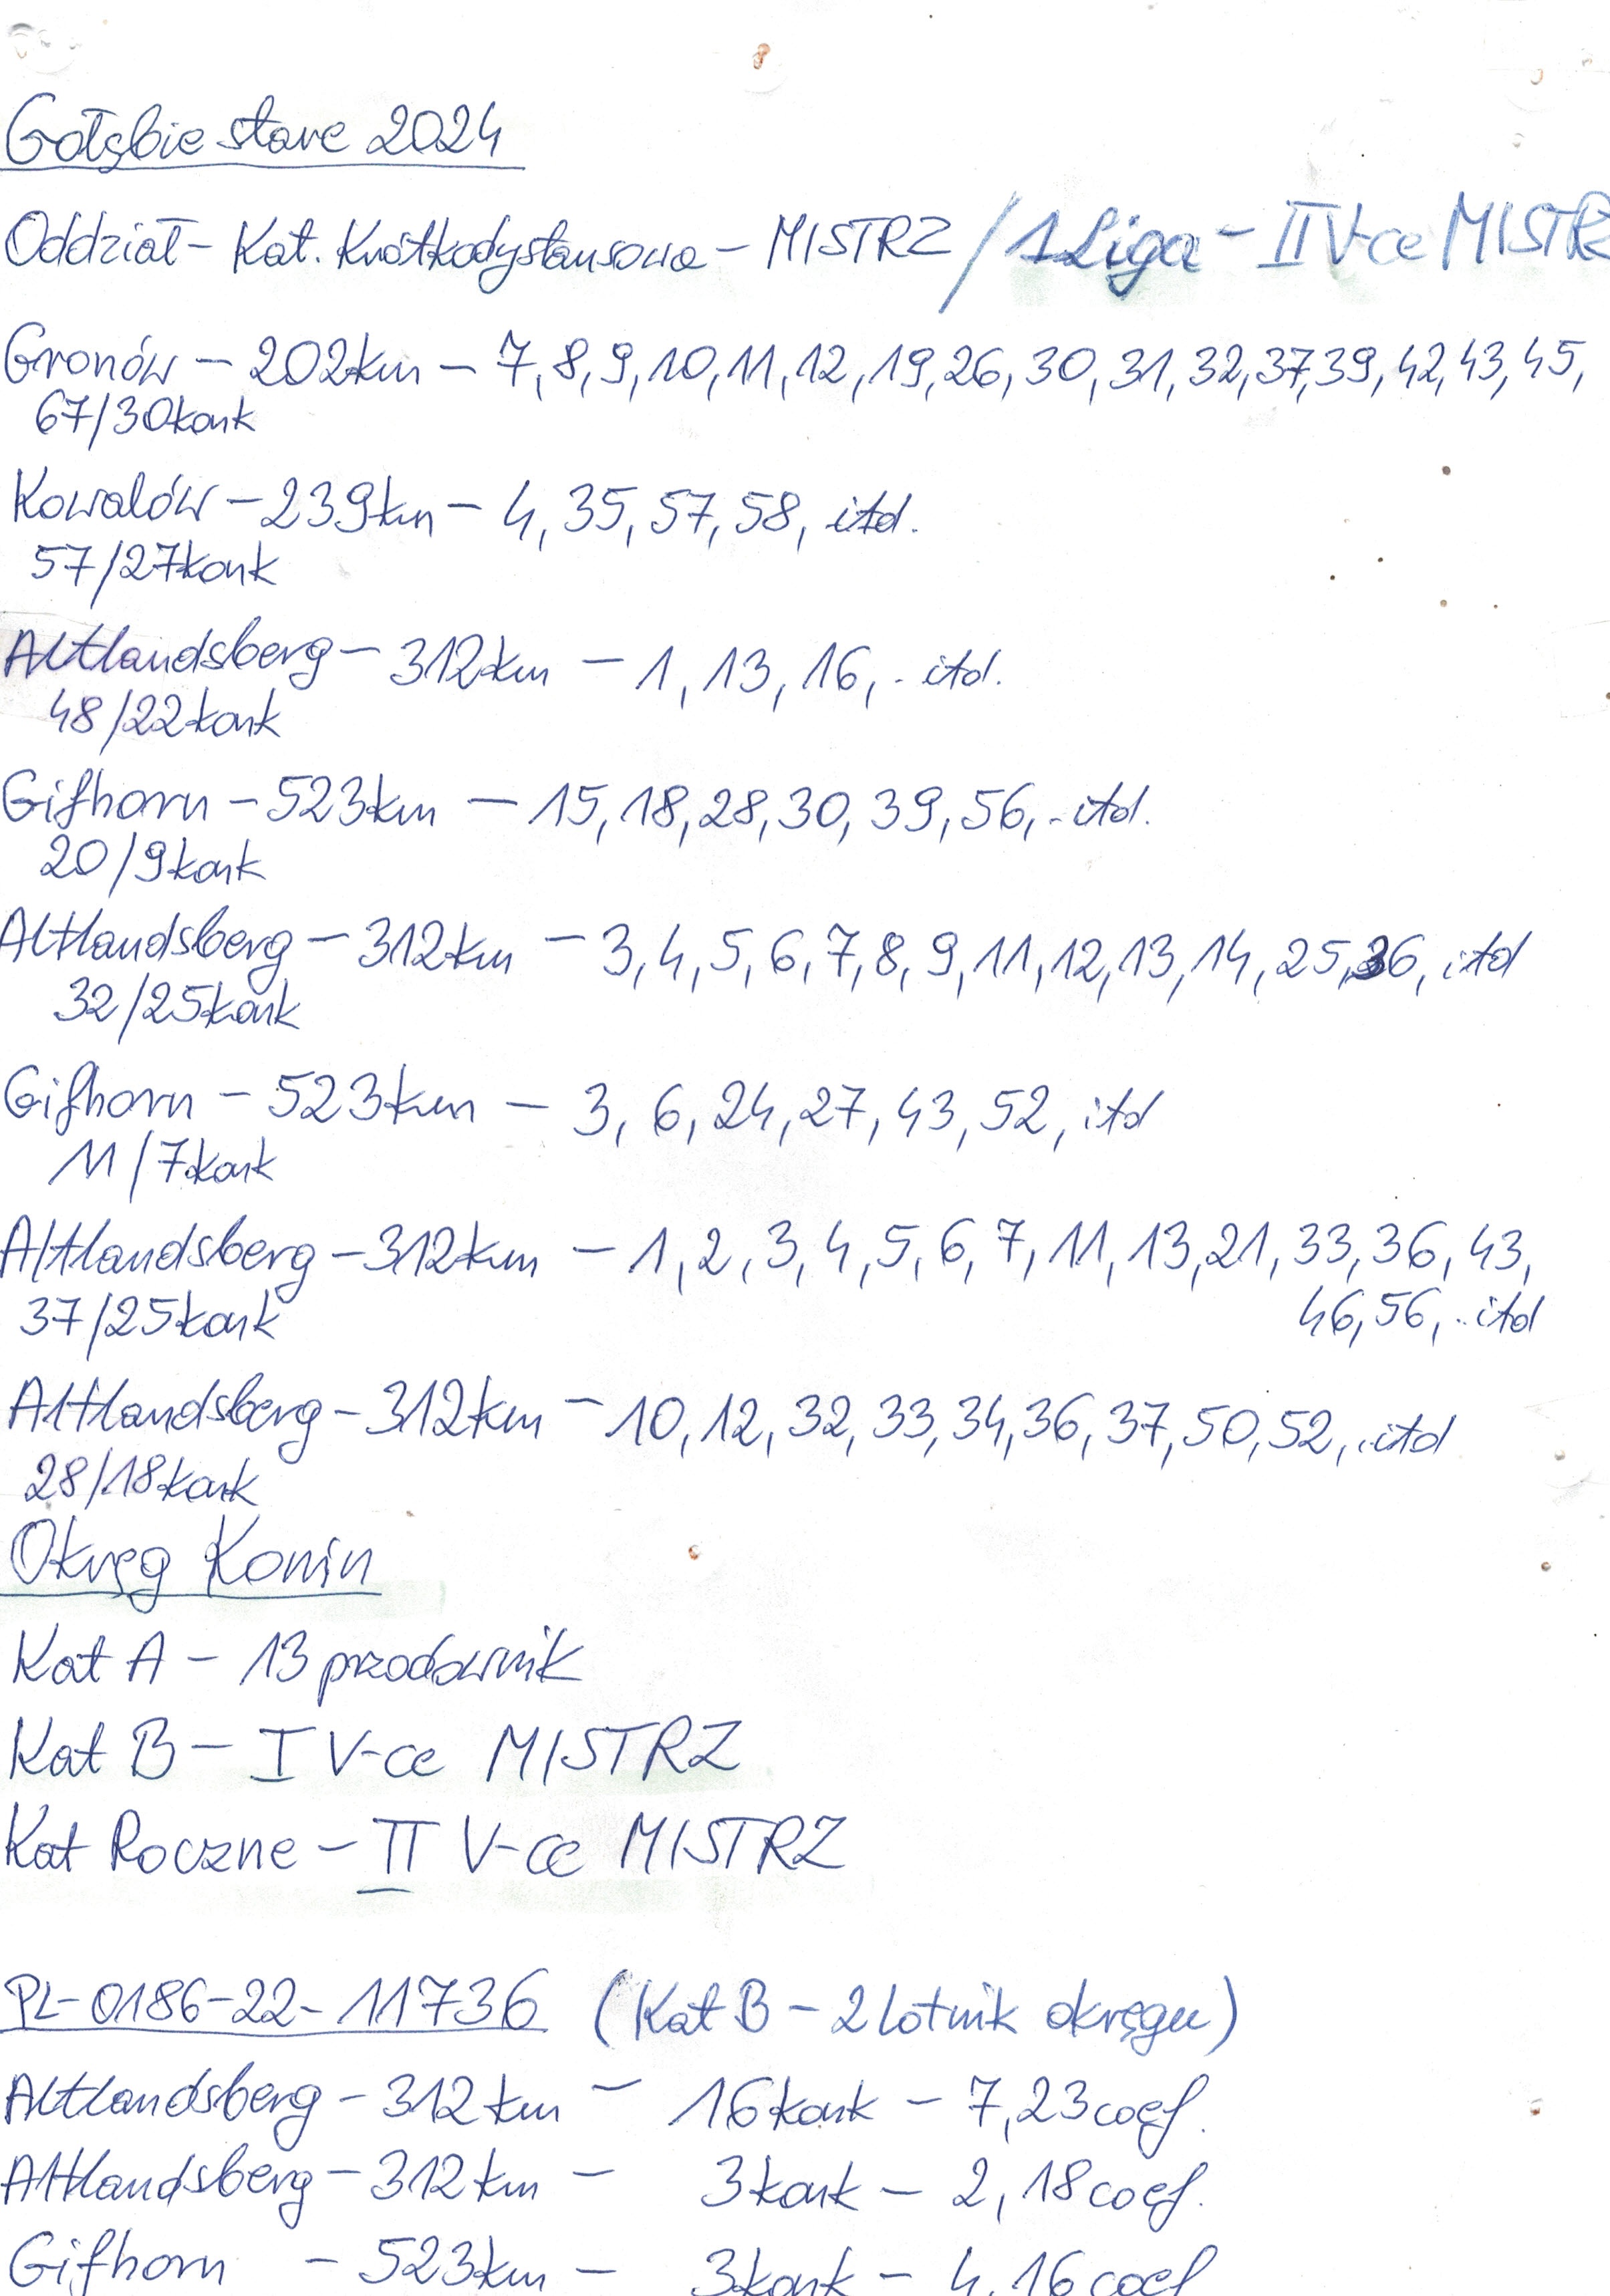 Gołębie stare 2024
Oddział - Kat. Krótkodystansowa - MISTRZ / 1 Liga - II V-ce MISTRZ
Gronów - 202km - 7, 8, 9, 10, 11, 12, 19, 26, 30, 31, 32, 37, 39, 42, 43, 45,
67/30konk
Kowalów - 239km - 4, 35, 57, 58, itd.
57/27konk
Altlandsberg - 312km - 1, 13, 16, .. itd.
48/22konk
Gifhorn - 523km - 15, 18, 28, 30, 39, 56, .. itd.
20/9konk
Altlandsberg - 312km - 3, 4, 5, 6, 7, 8, 9, 11, 12, 13, 14, 25, 36, itd
32/25konk
Gifhorn - 523km - 3, 6, 24, 27, 43, 52, itd
11/7konk
Altlandsberg - 312km - 1, 2, 3, 4, 5, 6, 7, 11, 13, 21, 33, 36, 43,
46, 56, .. itd
37/25konk
Altlandsberg - 312km - 10, 12, 32, 33, 34, 36, 37, 50, 52, .. itd
28/18konk
Okręg Konin
Kat A - 13 przodownik
Kat B - I V-ce MISTRZ
Kat Roczne - II V-ce MISTRZ
PL-0186-22-11736 (Kat B - 2 lotnik okręgu)
Altlandsberg - 312km - 16konk - 7,23coef.
Altlandsberg - 312km - 3konk - 2,18coef.
Gifhorn - 523km - 3konk - 4,16coef